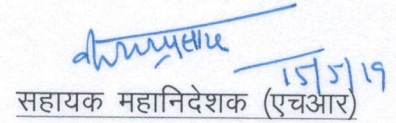 15/5/19
सहायक महानिदेशक (एचआर)